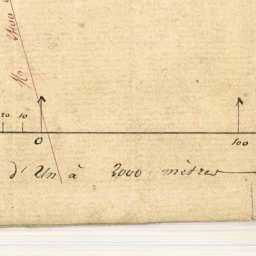 No 2400
20 10
0 100
d'Un à 2000 mètres